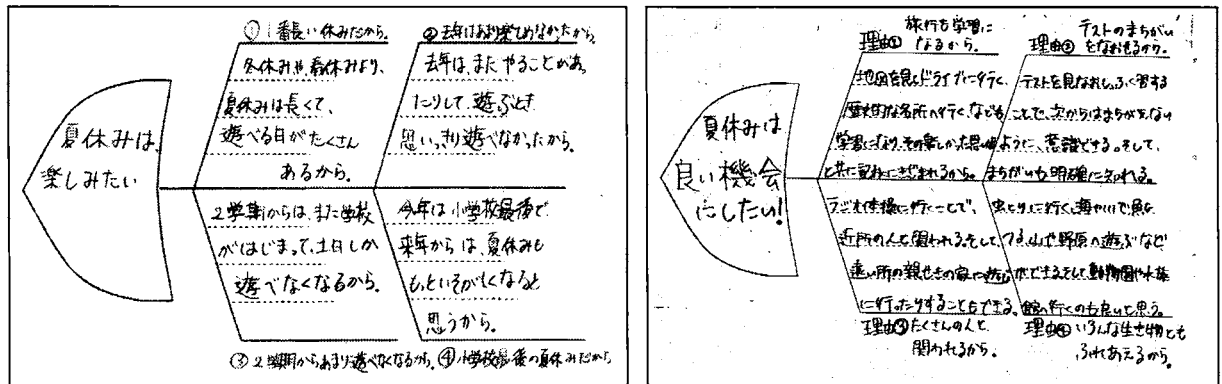 夏休みは、
楽しみたい
①1番長い休みだから。
冬休みや、春休みより、
夏休みは長くて、
遊べる日がたくさん
あるから。
②去年はあまり楽しめなかったから。
去年は、まだやることがあっ
たりして、遊ぶとき
思いっきり遊べなかったから。
2学期からは、また学校
がはじまって、土日しか
遊べなくなるから。
③2学期からあまり遊べなくなるから。
今年は小学校最後で
来年からは、夏休みも
もっといそがしくなると
思うから。
④小学校最後の夏休みだから
夏休みは
良い機会
にしたい!
理由①
旅行も学習に
なるから。
地図を見てドライブに行く、
歴史的な名所へ行くなども
学習になり、その楽しかった思い
と共に記おくにきざまれるから。
理由②
テストのまちがい
をなおせるから。
テストを見なおし、ふく習する
ことで、次からはまちがえない
ように、意識できる。そして、
まちがいも明確に知れる。
ラジオ体操に行くことで、
近所の人と関われる。そして、
遠い所の親せきの家に
に行ったりすることもできる。
理由③たくさんの人と
関われるから。
虫とりに行く、海や川で魚を
つる、山や野原へ遊ぶなど
ができる。そして動物園や水族
館へ行くのも良いと思う。
理由④いろんな生き物とも
ふれあえるから。